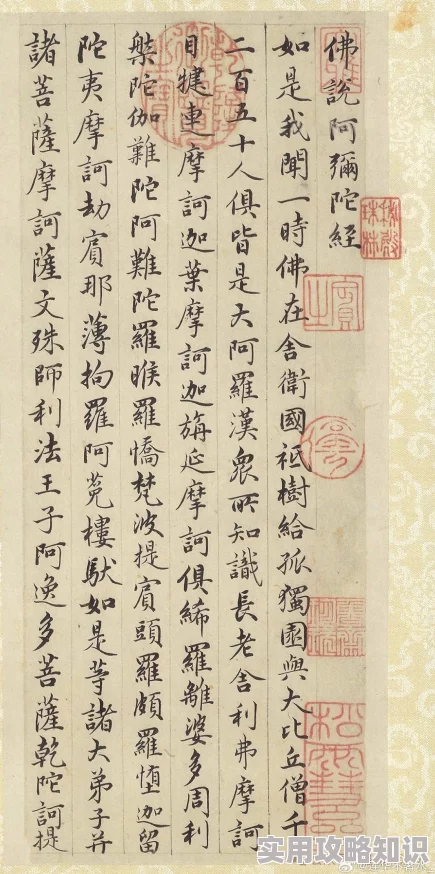 佛說阿彌陀經
如是我聞一時佛在舍衛國祇樹給孤獨園與大比丘僧千
二百五十人俱皆是大阿羅漢眾所知識長老舍利弗摩訶
目揵連摩訶迦葉摩訶迦旃延摩訶俱絺羅離婆多周利
槃陀伽難陀阿難陀羅睺羅憍梵波提賓頭羅頗羅墮迦留
陀夷摩訶劫賓那薄拘羅阿㝹樓馱如是等諸大弟子并
諸菩薩摩訶薩文殊師利法王子阿逸多菩薩乾陀訶提
秘殿珠林
实用攻略知识